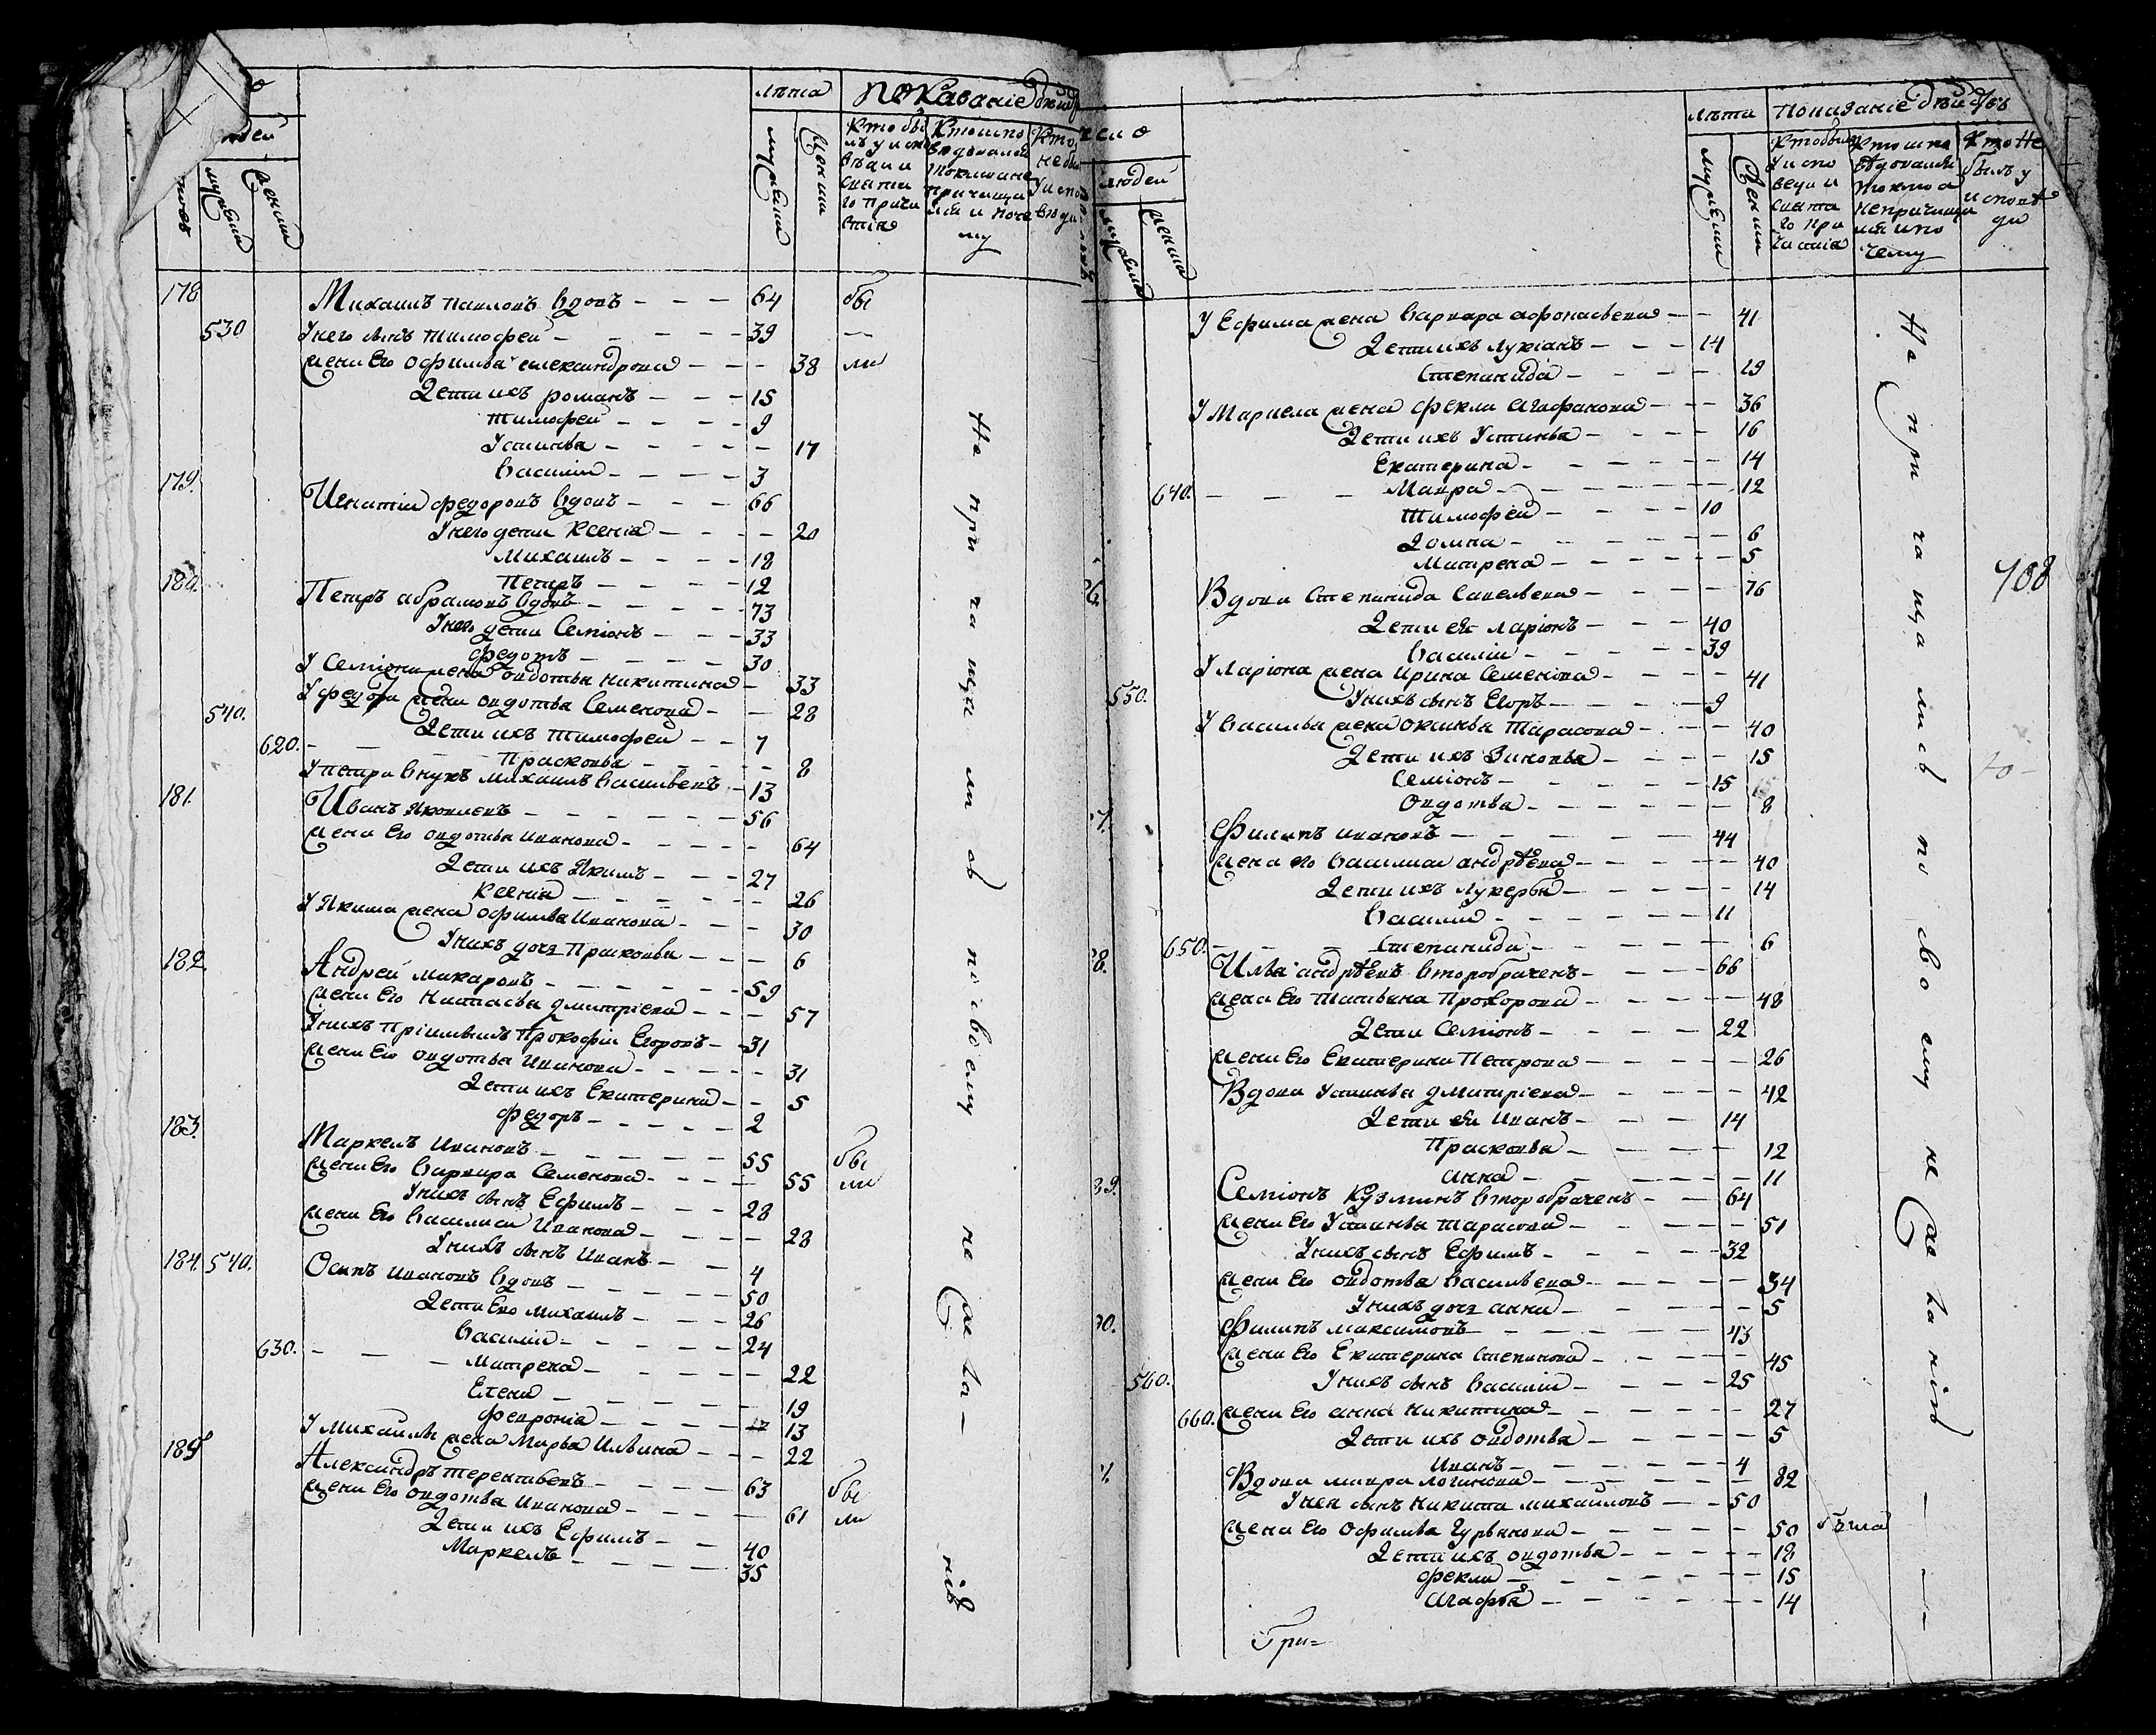 лѣта показаніе действъ
людей
мужеска
женска
мужеска
женска
Кто бы
лъ у испо
вѣди и
святаго
го прича
стія
Кто испо
ведовался
токмо а не
причаща
лся и поче
му
Кто
не былъ
у испо
вѣди
178 Михаилъ Павловъ вдовъ 64 бы
530 У него сынъ Тимофей 39
жена Его Офимья Александрова 38 ли
Дети ихъ Романъ 15
Тимофей 9
Устинья 17
Василій 3
179. Игнатій Федоровъ вдовъ 66
У него дети Ксенія 20
Михаилъ 18
Петръ 12
180. Петръ Абрамовъ вдовъ 73
У него дети Семіонъ 33
Федотъ 30
У Семіона жена Овдотья Никитина 33
540. У Федота жена Овдотья Семенова 28
Дети ихъ Тимофей 7
620. Прасковья 8
У Петра внукъ Михаилъ Васильевъ 13
181. Иванъ Яковлевъ 56
жена Его Овдотья Иванова 64
Дети ихъ Якимъ 27
Ксенія 26
У Якима жена Офимья Иванова 30
У нихъ дочь Прасковья 6
182. Андрей Макаровъ 59
жена Его Настасья Дмитріева 57
У нихъ пріимышъ Прокофій Егоровъ 31
жена Его Овдотья Иванова 31
Дети ихъ Екатерина 5
Федоръ 2
183. Маркелъ Ивановъ 55 бы
жена Его Варвара Семенова 55 ли
У нихъ сынъ Ефимъ 28
жена Его Василиса Иванова 28
У нихъ сынъ Иванъ 4
184. 540. Осипъ Ивановъ вдовъ 50
Дети Его Михаилъ 26
Василій 24
630. Матрена 22
Елена 19
Феврония 13
У Михаилы жена Марья Ильина 22
185 Александръ Терентьевъ 63 бы
жена Его Овдотья Иванова 61 ли
Дети ихъ Ефимъ 40
Маркелъ 35
Не причащались по своему не же ла нію
людей
мужеска
женска
лѣта показаніе действъ
мужеска
женска
Кто былъ
у испо
веди и
свята
го при
частія
Кто испо
ведовался
токмо а
не причаща
лся и по
чему
Кто не
былъ у
исповѣ
ди
У Ефима жена Варвара Афонасьева 41
Дети ихъ Лукіанъ 14
Степанида 19
У Маркела жена Фекла Агафонова 36
Дети ихъ Устинья 16
Екатерина 14
640. Мавра 12
Тимофей 10
Домна 6
Матрена 5
Вдова Степанида Савельева 76
Дети ея Ларіонъ 40
Василій 39
У Ларіона жена Ирина Семенова 41
550. У нихъ сынъ Егоръ 9
У Василья жена Оксинья Тарасова 40
Дети ихъ Зиновья 15
Семіонъ 15
Овдотья 8
Филипъ Ивановъ 44
жена его Василиса Андрѣева 40
Дети ихъ Лукерья 14
Василій 11
650. Степанида 6
Илья Андрѣевъ второбраченъ 66
жена Его Татьяна Прохорова 48
Дети Семіонъ 22
жена Его Екатерина Петрова 26
Вдова Устинья Дмитріева 42
Дети ея Иванъ 14
Прасковья 12
Анна 11
Семіонъ Кузминъ второбраченъ 64
жена Его Устинья Тарасова 51
У нихъ сынъ Ефимъ 32
жена Его Овдотья Васильева 34
У нихъ дочь Анна 5
Филипъ Максимовъ 43
жена Его Екатерина Степанова 45
560. У нихъ сынъ Василій 25
660. жена Его Анна Никитина 27
Дети ихъ Овдотья 5
Иванъ 4
Вдова Мавра Логинова 82
У нея сынъ Никита Михайловъ 50
жена Его Офимья Гурьянова 50 была
Дети ихъ Овдотья 18
Фекла 15
Агафья 14
Гри=
Не при ча ща ли сь по сво ему не же ла нію
708